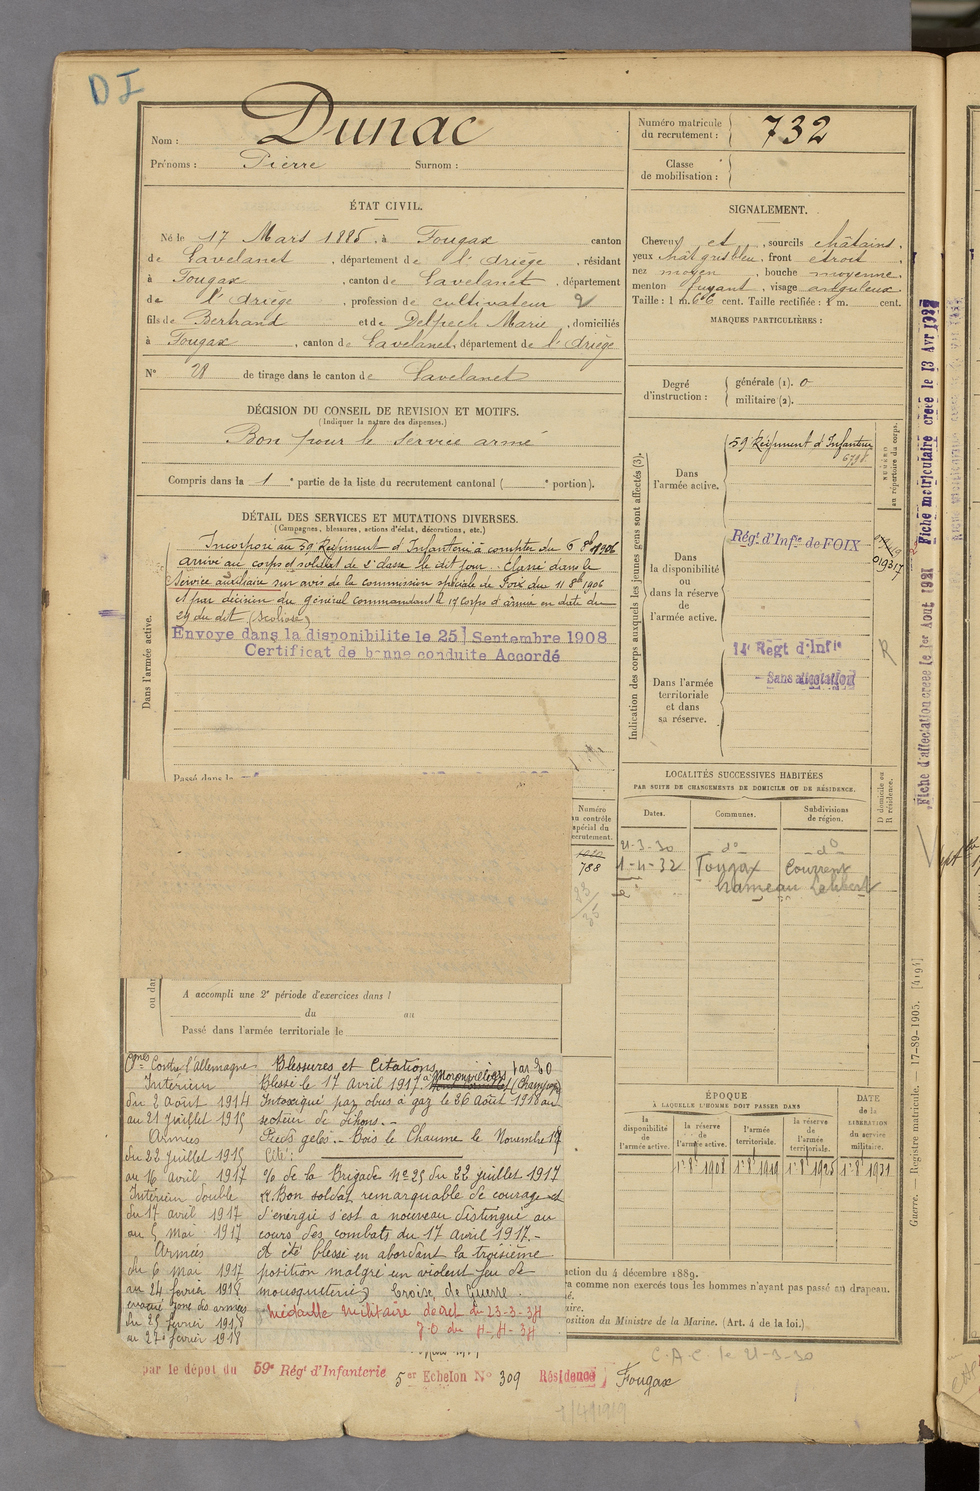 DI
Nom : Dunac
Prénoms : Pierre Surnom :
Numéro matricule du recrutement : 732
Classe de mobilisation :
ÉTAT CIVIL.
Né le 17 Mars 1885, à Fougax canton
de Lavelanet, département de l'Ariège, résidant
à Fougax, canton de Lavelanet, département
de l'Ariège, profession de cultivateur
fils de Bertrand et de Delpech Marie, domiciliés
à Fougax, canton de Lavelanet, département de l'Ariège
N° 28 de tirage dans le canton de Lavelanet
SIGNALEMENT.
Cheveux et, sourcils châtains,
yeux chât gris bleu, front étroit,
nez moyen, bouche moyenne,
menton fuyant, visage anguleux
Taille : 1 m. 66 cent. Taille rectifiée : 1 m. cent.
MARQUES PARTICULIÈRES :
Degré d'instruction : générale (1). 0
militaire (2).
DÉCISION DU CONSEIL DE REVISION ET MOTIFS.
(Indiquer la nature des dispenses.)
Bon pour le service armé
Compris dans la 1e partie de la liste du recrutement cantonal ( e portion).
DÉTAIL DES SERVICES ET MUTATIONS DIVERSES.
(Campagnes, blessures, actions d'éclat, décorations, etc.)
Dans l'armée active.
Incorporé au 59 Régiment d'Infanterie à compter du 6 8b 1906
arrivé au corps et soldat de 2e classe le dit jour. Classé dans le
Service auxiliaire sur avis de la Commission spéciale de Foix du 11 8b 1906
et par décision du général commandant le 17 Corps d'armée en date du
29 du dit (Scoliose)
Envoyé dans la disponibilité le 25 Septembre 1908
Certificat de bonne conduite Accordé
Passé dans la
Indication des corps auxquels les jeunes gens sont affectés (3).
Dans l'armée active.
59 Régiment d'Infanterie
6798
NUMÉRO au répertoire du corps.
Dans la disponibilité ou dans la réserve de l'armée active.
Régt d'Infie de FOIX
Dans l'armée territoriale et dans sa réserve.
14e Regt d'Infie
Sans affectation
R
Fiche matriculaire créée le 13 Avr 1922
Fiche d'affectation créée le 1er Aout 1921
LOCALITÉS SUCCESSIVES HABITÉES
PAR SUITE DE CHANGEMENTS DE DOMICILE OU DE RÉSIDENCE.
Dates. Communes. Subdivisions de région. D domicile ou R résidence.
21-3-30 do do
1-4-32 Fougax Courrent
hameau
Numéro au contrôle spécial du recrutement.
788
83/35
A accompli une 2e période d'exercices dans l
du au
Passé dans l'armée territoriale le
Cgnes Contre l'Allemagne
Intérieur
du 2 août 1914
au 21 juillet 1915
Armées
du 22 juillet 1915
au 16 avril 1917
Intérieur double
du 17 avril 1917
au 5 mai 1917
Armées
du 6 mai 1917
au 24 février 1918
évacué zone des armées
du 25 février 1918
au 27 février 1918
Blessures et Citations
Blessé le 17 Avril 1917 à Moronvilliers par EO (Champagne)
Intoxiqué par obus à gaz le 26 Août 1918 au
secteur de Lihons.-
Pieds gelés.- Bois le Chaume le Novembre 17
Cité :
O/ de la Brigade No 25 du 22 juillet 1917
"Bon soldat, remarquable de courage et
d'énergie s'est à nouveau distingué au
cours des combats du 17 avril 1917.-
A été blessé en abordant la troisième
position malgré un violent feu de
mousqueterie" Croix de Guerre.
Médaille Militaire décret du 23-3-34
J.O du 4-4-34
ÉPOQUE
À LAQUELLE L'HOMME DOIT PASSER DANS
la disponibilité de l'armée active. la réserve de l'armée active. l'armée territoriale. la réserve de l'armée territoriale.
DATE de la LIBÉRATION du service militaire.
1er 8b 1908 1er 8b 1919 1er 8b 1925 1er 8b 1931
ction du 4 décembre 1889.
a comme non exercés tous les hommes n'ayant pas passé au drapeau.
é.
aire.
position du Ministre de la Marine. (Art. 4 de la loi.)
Guerre. — Registre matricule. — 17-89-1905. [4194]
par le dépôt du 59e Régt d'Infanterie 5e Echelon No 309 Résidence Fougax
C.A.C. le 21-3-30